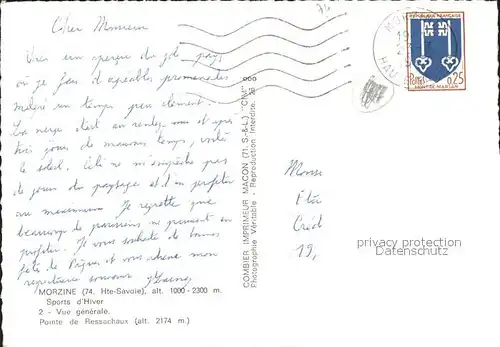 Cher Monsieur
Voici un aperçu du joli pays
où je fais d'agréables promenades
malgré un temps peu clément.
La neige était au rendez vous et après
trois jours de mauvais temps, voilà
le soleil. Cela ne m'empêche pas
de jouir du paysage et d'en profiter
au maximum. Je regrette que
beaucoup de parisiens ne puissent en
profiter. Je vous souhaite de bonnes
fêtes de Pâques et vous adresse mon
respectueux souvenir
MORZINE (74. Hte-Savoie), alt. 1000 - 2300 m.
Sports d'Hiver
2 - Vue générale.
Pointe de Ressachaux (alt. 2174 m.)
COMBIER IMPRIMEUR MACON (71. S.-&-L.) "CIM"
Photographie Véritable - Reproduction Interdite.
REPUBLIQUE FRANÇAISE
Postes 0,25
MONT DE MARSAN
MORZ
19
HAU
Monsi
Créd
19,
privacy protection
Datenschutz